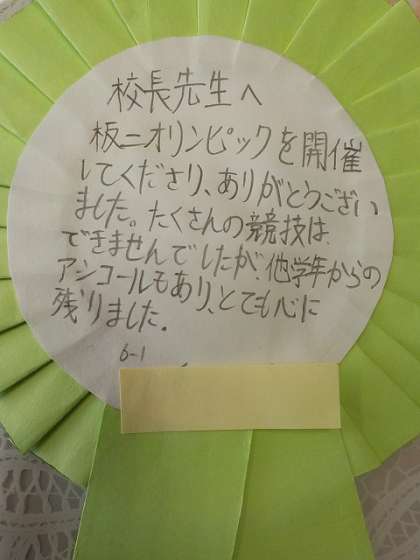 校長先生へ
板二オリンピックを開催
してくださり、ありがとうござい
ました。たくさんの競技は
できませんでしたが、他学年からの
アンコールもあり、とても心に
残りました。
6-1